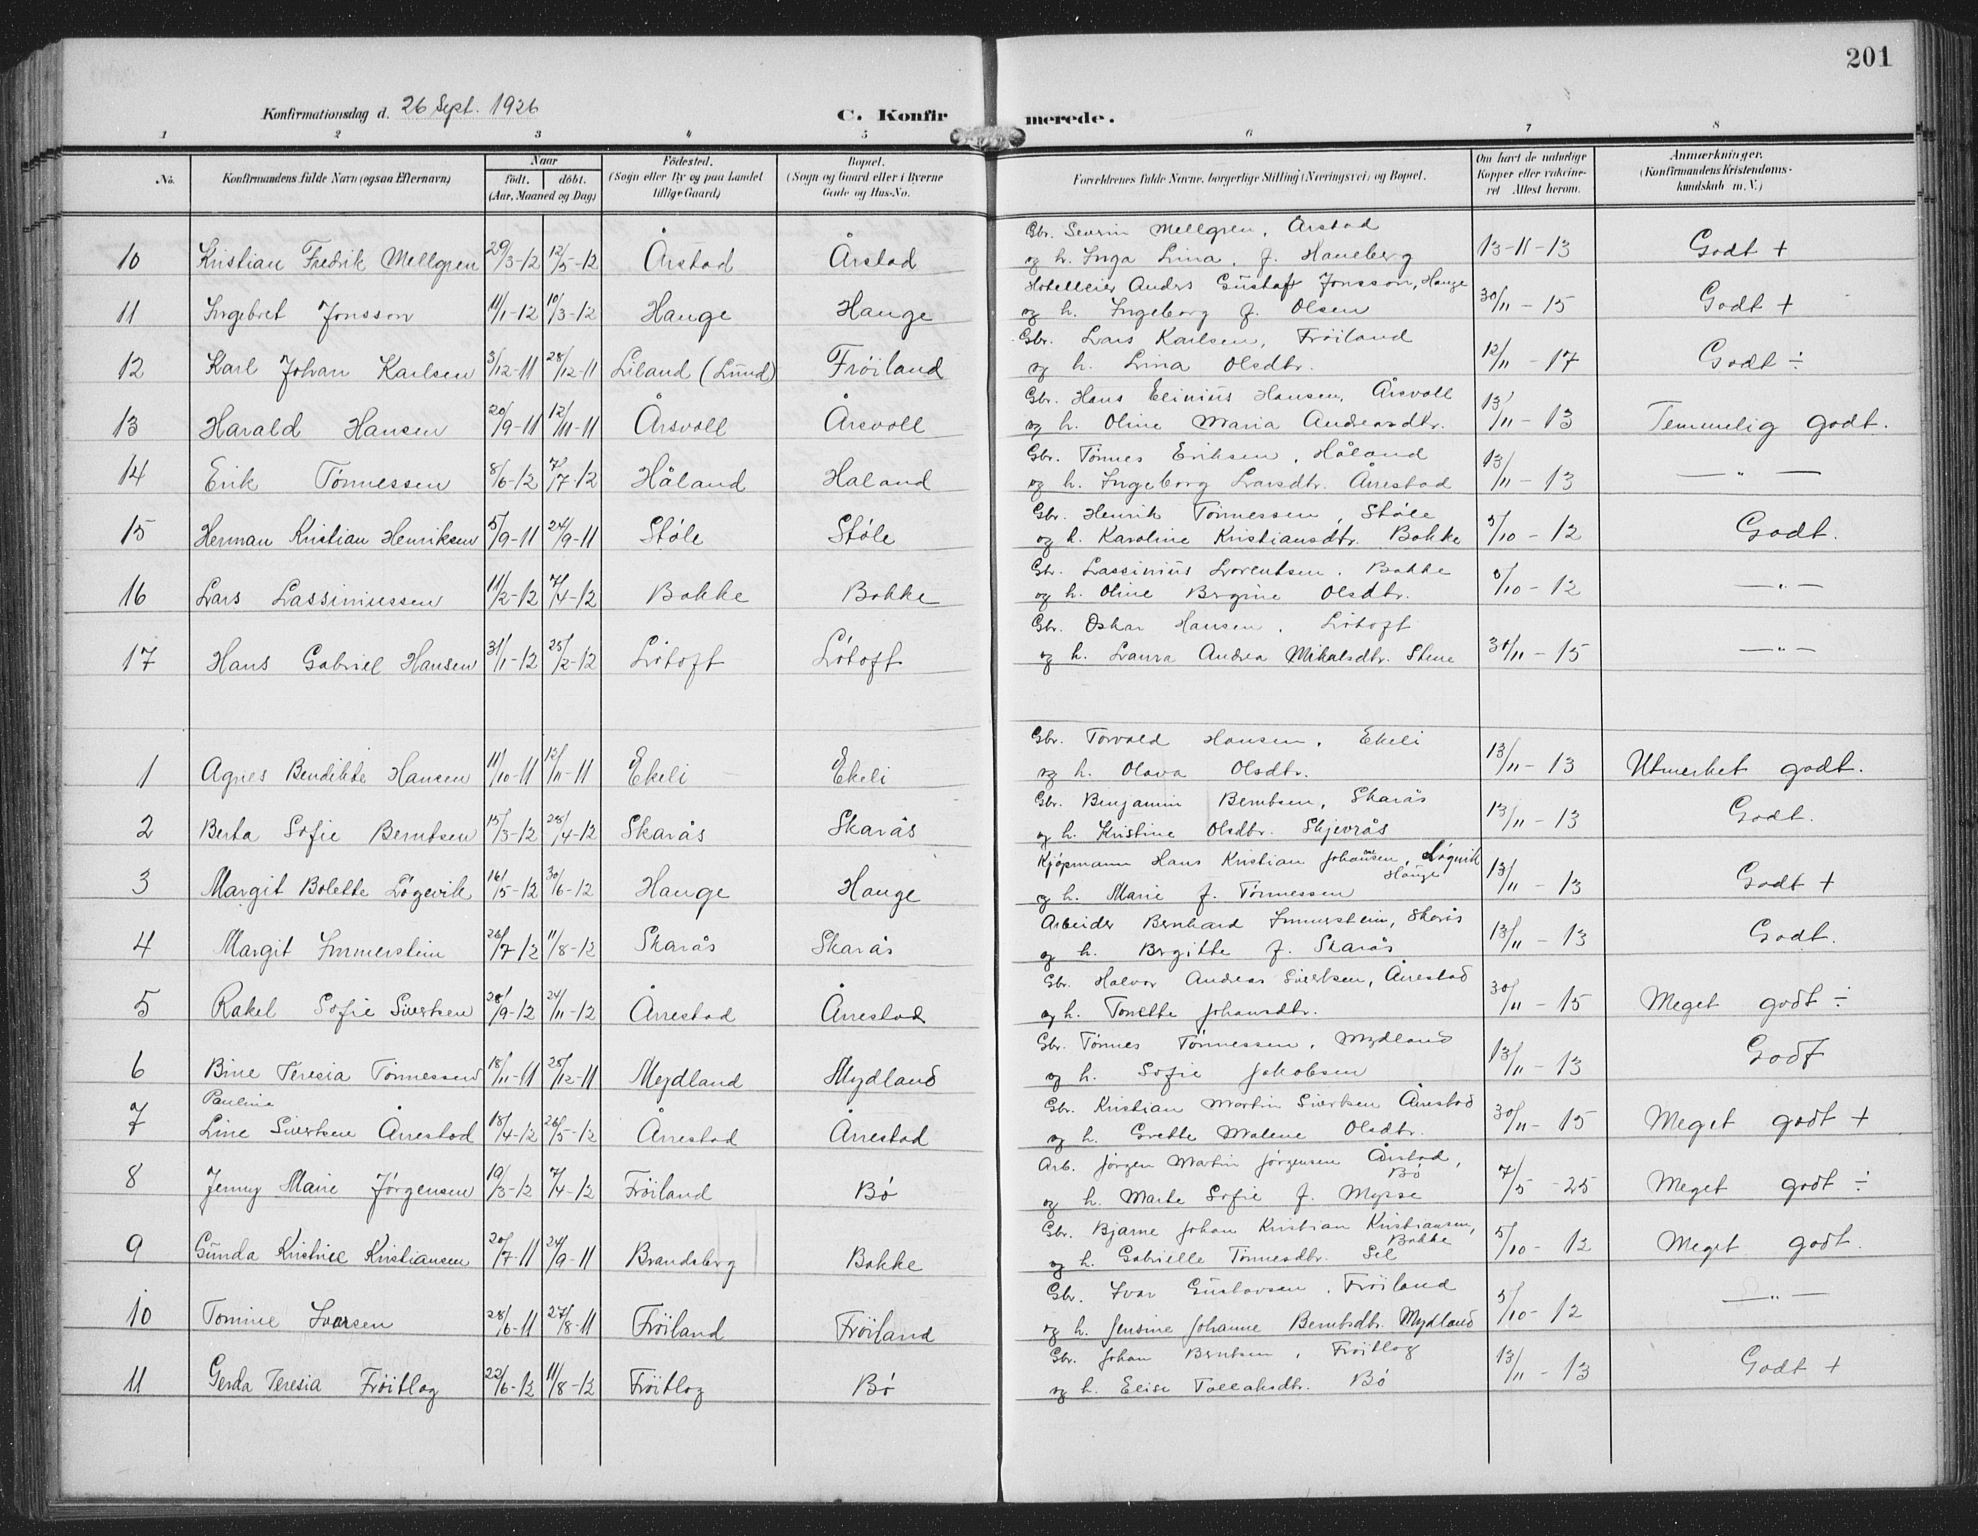 201
Konfirmationsdag d. 26 Sept. 1926 C. Konfirmerede.
1 2 3 4 5 6 7 8
No. Konfirmandens fulde Navn (ogsaa Efternavn) Naar født. døbt. (Aar, Maaned og Dag) Fødested. (Sogn eller By og paa Landet tillige Gaard) Bopæl. (Sogn og Gaard eller i Byerne Gade og Hus-No. Forældrenes fulde Navne, borgerlige Stilling (Næringsvei) og Bopæl. Om havt de naturlige Kopper eller vakcineret. Attest herom. Anmærkninger. (Konfirmandens Kristendomskundskab m. V.)
Gbr. Severin Mellgren, Årstad
10 Kristian Fredrik Mellgren 29/3-12 12/5-12 Årstad Årstad og h. Inga Lina, f. Haneberg 13-11-13 Godt +
Hotelleier Anders Gustaf Jonsson, Hauge
11 Ingebret Jonsson 11/1-12 10/3-12 Hauge Hauge og h. Ingeborg f. Olsen 30/11-15 Godt +
Gbr. Lars Karlsen, Frøiland
12 Karl Johan Karlsen 3/12-11 28/12-11 Liland (Lund) Frøiland og h. Lina Olsdtr. 12/11-17 Godt ÷
Gbr. Hans Elinius Hansen, Årsvoll
13 Harald Hansen 20/9-11 12/11-11 Årsvoll Årsvoll og h. Oline Maria Andreasdtr. 13/11-13 Temmelig godt.
Gbr. Tønnes Eriksen, Håland
14 Erik Tønnessen 8/6-12 7/7-12 Håland Haland og h. Ingeborg Larsdtr. Årrestad 13/11-13 — " —
Gbr. Henrik Tønnessen, Støle
15 Herman Kristian Henriksen 5/9-11 24/9-11 Støle Støle og h. Karoline Kristiansdtr. Bakke 5/10-12 Godt.
Gbr. Lassinius Lorentsen. Bakke
16 Lars Lassiniussen 11/2-12 7/4-12 Bakke Bakke og h. Oline Bergine Olsdtr. 5/10-12 — " —
Gbr. Oskar Hansen. Låtoft
17 Hans Gabriel Hansen 31/1-12 25/2-12 Låtoft Låtoft og h. Laura Andrea Mikalsdtr. Stene 30/11-15 — " —
Gbr. Torvald Hansen. Ekeli
1 Agnes Bendikte Hansen 11/10-11 12/11-11 Ekeli Ekeli og h. Olava Olsdtr. 13/11-13 Utmerket godt.
Gbr. Benjamin Berntsen, Skarås
2 Berta Sofie Berntsen 15/3-12 28/4-12 Skarås Skarås og h. Kristine Olsdtr. Skjevrås 13/11-13 Godt.
Kjøpmann Hans Kristian Johansen, Løgevik
Hauge
3 Margit Bolette Løgevik 16/5-12 30/6-12 Hauge Hauge og h. Marie f. Tønnessen 13/11-13 Godt +
Arbeider Bernhard Immerstein, Skarås
4 Margit Immerstein 26/7-12 11/8-12 Skarås Skarås og h. Bergitte f. Skarås 13/11-13 Godt.
Gbr. Halvor Andreas Sivertsen, Årrestad
5 Rakel Sofie Sivertsen 28/9-12 24/11-12 Årrestad Årrestad og h. Tonette Johansdtr. 30/11-15 Meget godt ÷
Gbr. Tønnes Tønnessen, Mydland
6 Bine Teresia Tønnessen 18/11-11 25/12-11 Mydland Mydland og h. Sofie Jakobsen 13/11-13 Godt
Pauline Gbr. Kristian Martin Sivertsen Årrestad
7 Line Sivertsen Årrestad 18/4-12 26/5-12 Årrestad Årrestad og h. Grette Malene Olsdtr. 30/11-15 Meget godt +
Arb. Jørgen Martin Jørgensen Årstad,
Bø
8 Jenny Marie Jørgensen 19/3-12 7/4-12 Frøiland Bø og h. Marte Sofie f. Mysse 7/5-25 Meget godt ÷
Gbr. Bjarne Johan Kristian Kristiansen,
Bakke
9 Gunda Kristine Kristiansen 20/7-11 24/9-11 Brandsberg Bakke og h. Gabrielle Tønnesdtr. Sel 5/10-12 Meget godt.
Gbr. Ivar Gustavsen. Frøiland
10 Tomine Ivarsen 28/6-11 27/8-11 Frøiland Frøiland og h. Jensine Johanne Berntsdtr. Mydland 5/10-12 — " —
Gbr. Johan Berntsen, Frøitlog
11 Gerda Teresia Frøitlog 22/6-12 11/8-12 Frøitlog Bø og h. Elise Tollaksdtr. Bø 13/11-13 Godt +